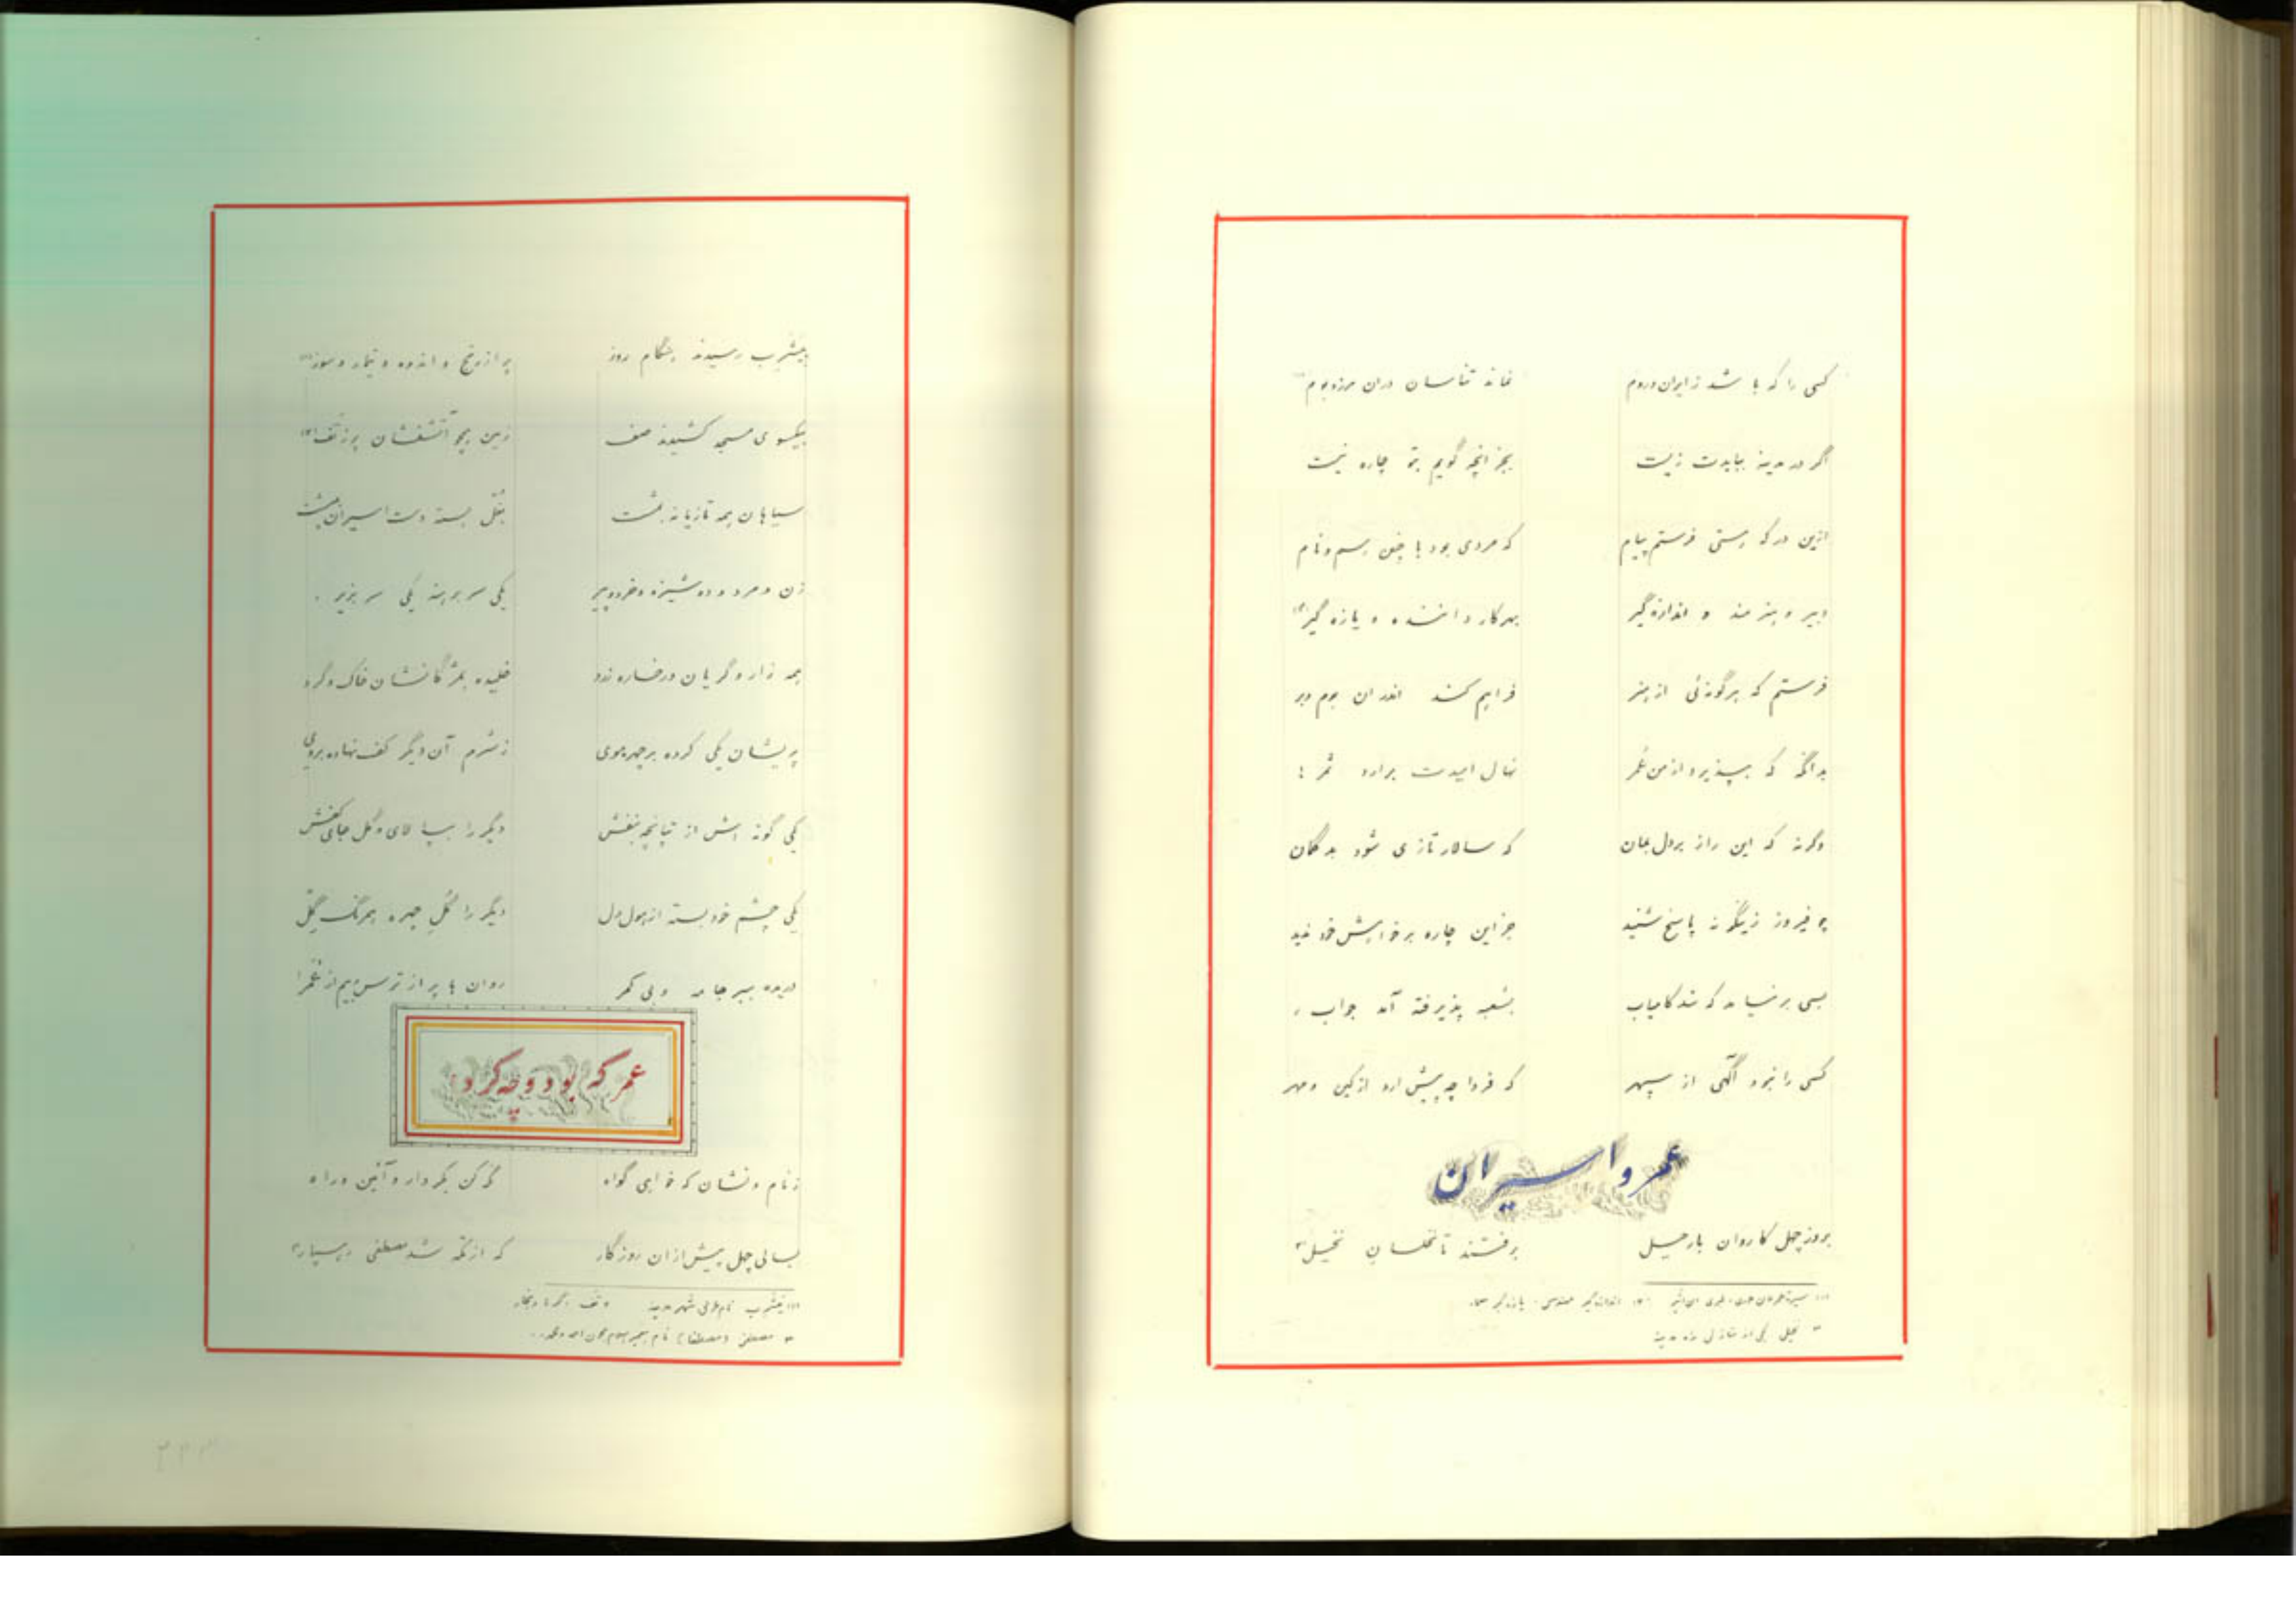 کسی را که باشد ز ایران و روم نماند تناسان دران مرز و بوم
اگر در مدینه ببایدت زیست بجز انچه گویم بتو چاره نیست
ازین در که رستی فرستم پیام که مردی بود با چنین رسم و نام
دبیر و هنرمند و اندازه گیر بهر کار داننده و یازه گیر (۲)
فرستم که هرگونه‌ئی از هنر فراهم کند اندران بوم و بر
بدانگه که بپذیرد از من عُمر نهال امیدت برارد ثمر
وگرنه که این راز بر دل بمان که سالار تازی شود بدگمان
چو فیروز زینگونه پاسخ شنید جز این چاره بر خواهش خود ندید
بسی بر نیامد که شد کامیاب بشعبه پذیرفته آمد جواب
کسی را نبود آگهی از سپهر که فردا چه پیش ارد از کین و مهر
عمر و اسیران
بروز چهل کاروان با رحیل برفتند تا نخلسانِ نخیل
نخیل یکی از منازل راه مدینه
بیثرب رسیدند هنگام روز پر از رنج و اندوه و تیمار و سوز (۱)
بیکسوی مسجد کشیدند صف زمین همچو آتشفشان پر ز تف
سیاهان همه تازیانه بمشت بغُل بسته دست اسیران بپشت
زن و مرد و دوشیزه و خرد و پیر یکی سر برهنه یکی سر بزیر
همه زار و گریان و رخساره زرد خلیده بمژگانشان خاک و گرد
پریشان یکی کرده بر چهره موی ز شرم آن دگر کف نهاده بروی
یکی گونه اش از تپانچه بنفش دیگر را بپا لای و گل جای کفش
یکی چشم خود بسته از هول دل دیگر را گُلِ چهره همرنگ گِل
دریده ببر جامه و بی کمر روان ها پر از ترس و بیم از عُمر
عمر که بود و چه کرد؟
ز نام و نشان که خواهی گواه نگر کن بکردار و آئین و راه
بسالی چهل پیش ازان روزگار که از مکه شد مصطفی رهسپار (۲)
(۱) یثرب نام شهر مدینه و تف